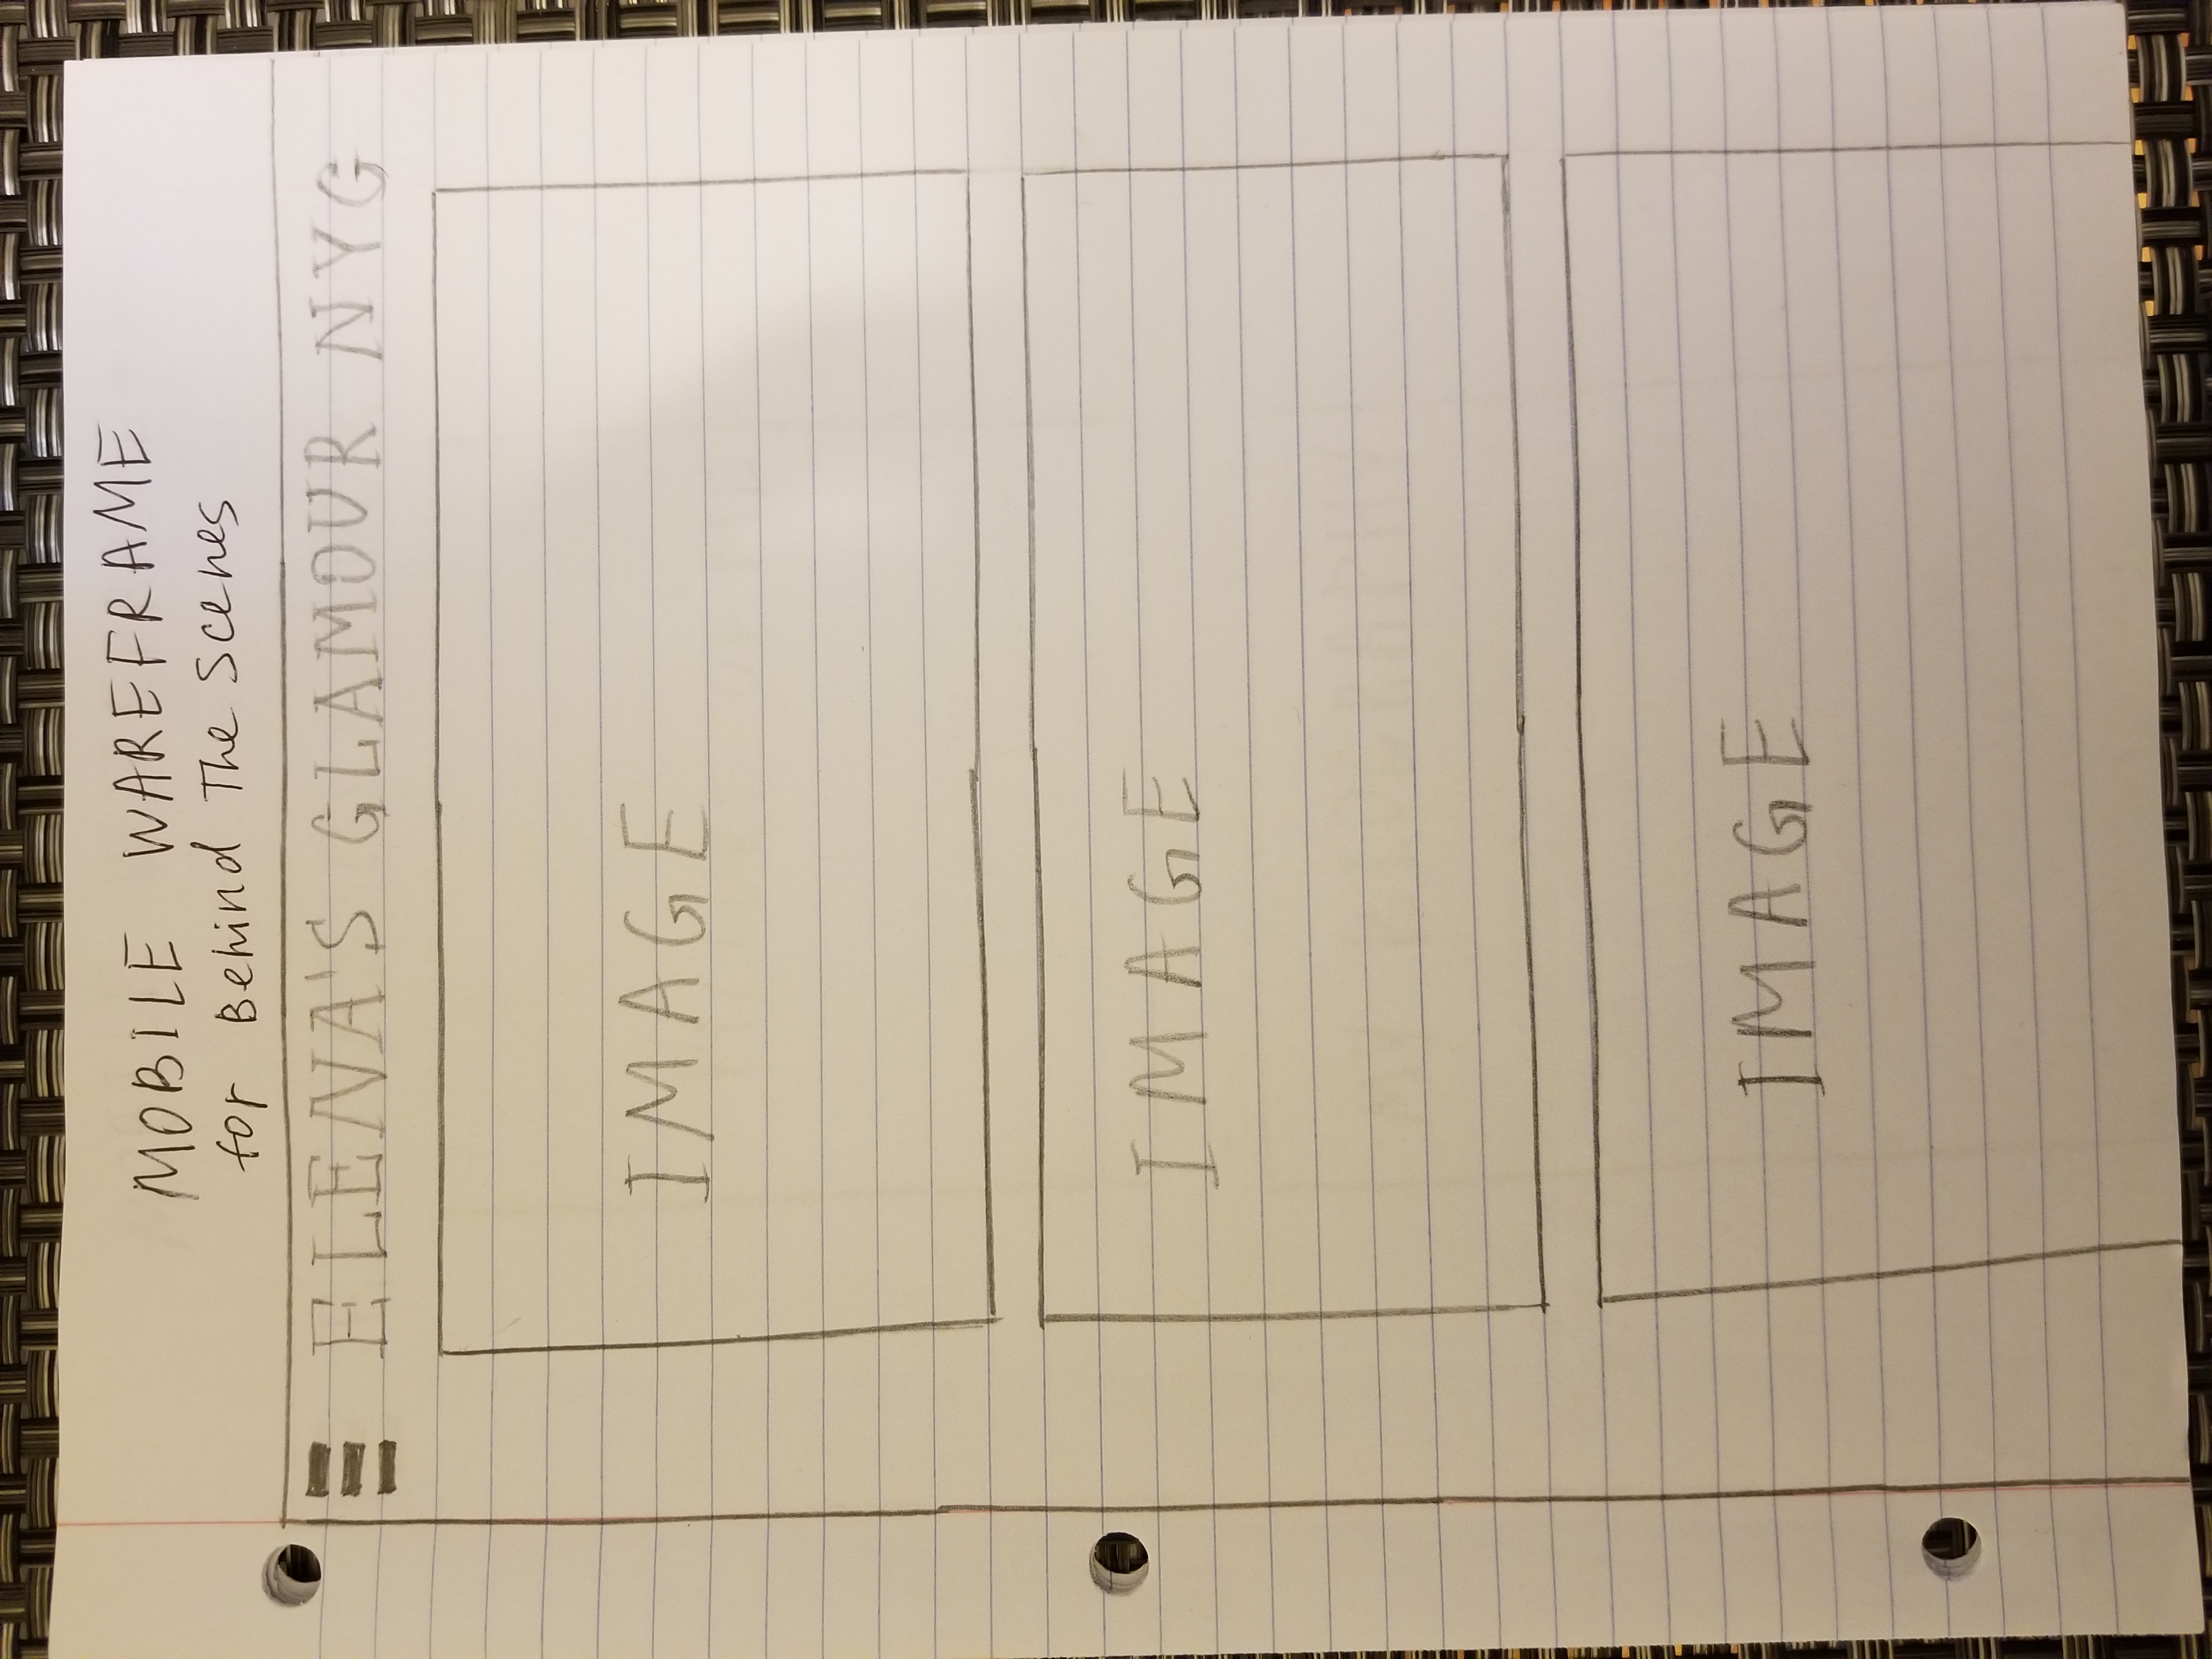 MOBILE WAREFRAME
for Behind The Scenes
ELENA'S GLAMOUR NYG
IMAGE
IMAGE
IMAGE